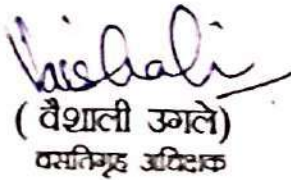 Vaishali
( वैशाली उगले)
वसतिगृह अधिक्षक